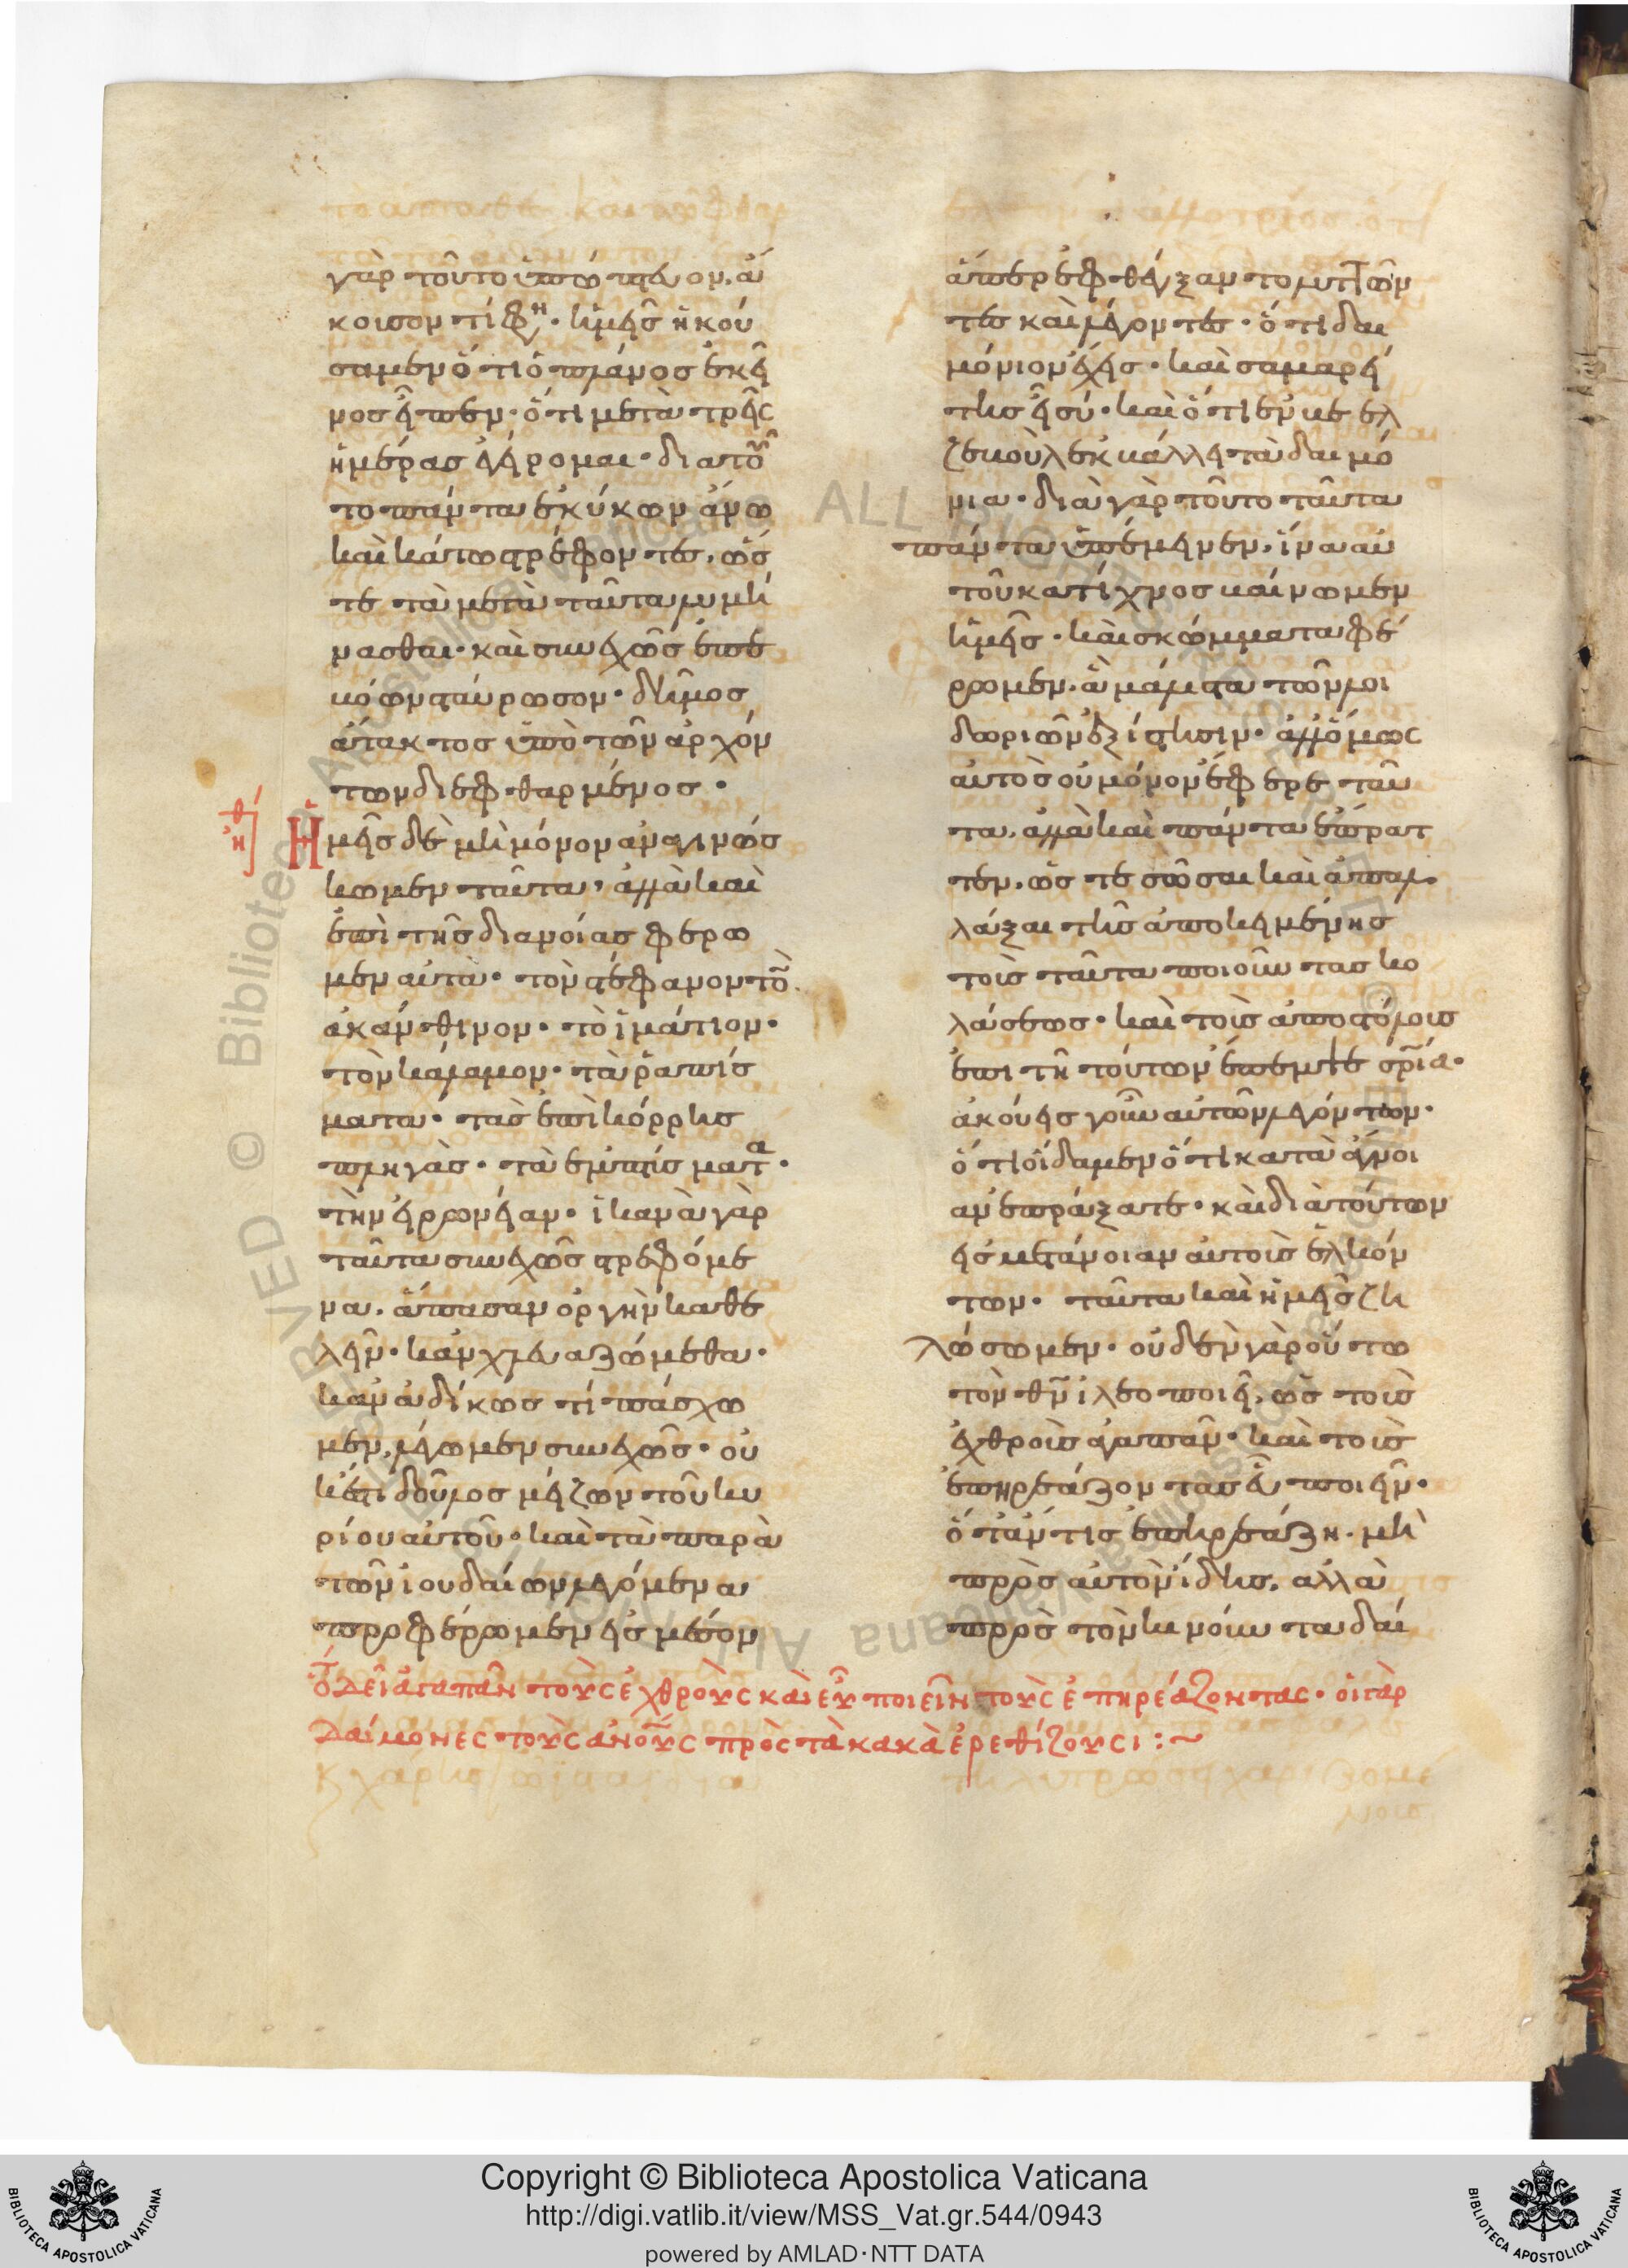 γὰρ τοῦτο ὑπώπτευον. ἄ
κουσον τί φη. ἡμεῖς ἠκού
σαμεν ὅτι ὁ πλάνος ἐκεῖ
νος εἶπεν· ὅτι μετὰ τρεῖς
ἡμέρας ἐγείρομαι· διατοῦ
το πάντα ἐκύκων ἄνω
καὶ κάτω στρέφοντες, ὥσ
τε τὰ μετὰ ταῦτα λυμή
νασθαι· καὶ συνεχῶς ἐπε
βόων σταύρωσον· δῆμος
ἄτακτος ὑπὸ τῶν ἀρχόν
των διεφθαρμένος·
Ἡμεῖς δὲ μὴ μόνον ἀναγινώσ
κωμεν ταῦτα, ἀλλὰ καὶ
ἐπὶ τῆς διανοίας φέρω
μεν αὐτὰ· τὸν στέφανον τὸν
ἀκάνθινον· τὸ ἱμάτιον·
τὸν κάλαμον· τὰ ῥαπίσ
ματα· τὰς ἐπὶ κόρρης
πληγὰς· τὰ ἐμπτύσματα·
τὴν εἰρωνείαν· ἱκανὰ γὰρ
ταῦτα συνεχῶς στρεφόμε
να, ἅπασαν ὀργὴν καθε
λεῖν· κἂν χλευαζώμεθα·
κἂν ἀδίκως τί πάσχω
μεν, λέγωμεν συνεχῶς· οὐ
κ ἔστι δοῦλος μείζων τοῦ κυ
ρίου αὐτοῦ· καὶ τὰ παρὰ
τῶν ἰουδαίων λεγόμενα
προφέρωμεν εἰς μέσον
ἅπερ ἐφθέγξαντο λυττῶν
τες καὶ λέγοντες· ὅτι δαι
μόνιον ἔχεις· καὶ σαμαρεί
της εἶ σύ· καὶ ὅτι ἐν βεελ
ζεβοὺλ ἐκβάλλει τὰ δαιμό
νια· διὰ γὰρ τοῦτο ταῦτα
πάντα ὑπέμεινεν, ἵνα αὐ
τοῦ κατίχνος βαίνωμεν
ἡμεῖς· καὶ σκώμματα φέ
ρωμεν, ἃ μάλιστα τῶν λοι
δοριῶν ἐξίστησιν· ἀλλ' ὅμως
αὐτὸς οὐ μόνον ἔφερε ταῦ
τα, ἀλλὰ καὶ πάντα ἔπρατ
τεν, ὥστε σῶσαι καὶ ἀπαλ
λάξαι τῆς ἀποκειμένης
τοῖς ταῦτα ποιοῦντας κο
λάσεως· καὶ τοὺς ἀποστόλους
ἐπι τῆ τούτων ἔπεμπε σρία·
ἀκούεις γοῦν αὐτῶν λεγόντων·
ὅτι οἴδαμεν ὅτι κατὰ ἄγνοι
αν ἐπράξατε· καὶ διὰ τούτων
εἰς μετάνοιαν αὐτοὺς ἑλκόν
των· ταῦτα καὶ ἡμεῖς ζη
λώσωμεν· οὐδὲν γὰρ οὕτω
τὸν θν ἵλεω ποιεῖ, ὡς τοὺς
ἐχθροὺς ἀγαπᾶν· καὶ τοὺς
ἐπηρεάζοντας εὖ ποιεῖν·
ὅταν τις ἐπηρεάζη, μὴ
πρὸς αὐτὸν ἴδης, ἀλλὰ
πρὸς τὸν κινοῦντα δαί
ὅτι δεῖ ἀγαπᾶν τοὺς ἐχθροὺς καὶ εὖ ποιεῖν τοὺς ἐπηρεάζοντας· οἱ γὰρ
δαίμονες τοὺς ανους πρὸς τὰ κακὰ ἐρεθίζουσι :~
Copyright © Biblioteca Apostolica Vaticana
http://digi.vatlib.it/view/MSS_Vat.gr.544/0943
powered by AMLAD·NTT DATA
BIBLIOTECA APOSTOLICA VATICANA
BIBLIOTECA APOSTOLICA VATICANA